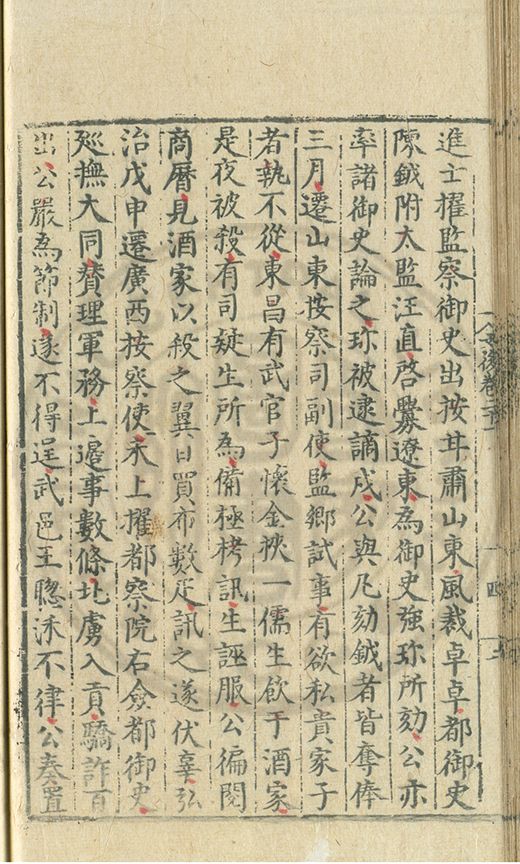 進士擢監察御史出按甘肅山東風裁卓卓都御史
陳鉞附太監汪直啓釁遼東為御史強珎所劾公亦
率諸御史論之珎被逮謫戍公與凡劾鉞者皆奪俸
三月遷山東按察司副使監鄉試事有欲私貴家子
者執不從東昌有武官子懷金挾一儒生飲于酒家
是夜被殺有司疑生所為備極栲訊生誣服公徧閱
商曆見酒家以殺之翼日買布數疋訊之遂伏辜弘
治戊申遷廣西按察使未上擢都察院右僉都御史
廵撫大同贊理軍務上邊事數條北虜入貢驕詐百
出公嚴為節制遂不得逞武邑王聰沬不律公奏置